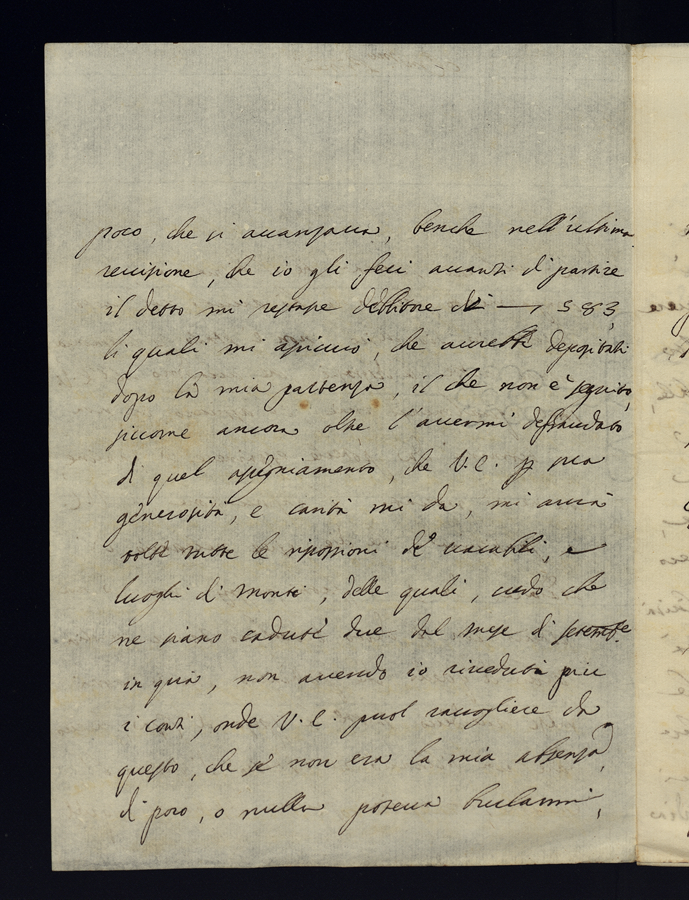 poco, che si auanzaua, benche nell'ultima
reuisione, che io gli feci auanti di partire
il detto mi restasse debbitore di — 583
li quali mi assicurò, che aurebbe depositati
dopo la mia partenza, il che non è seguito,
siccome ancora oltre l'auermi defraudato
di quel assegniamento, che V.E. p sua
generosità, e carità mi da, mi aurà
tolte tutte le riposioni de uacabili, e
luoghi di Monte, delle quali, credo che
ne siano cadute due dal mese di settembre
in quà, non auendo io riueduti più
i conti, onde V.E. puol racogliere da
questo, che se non era la mia assenza,
di poco, o nulla poteua burlarmi,